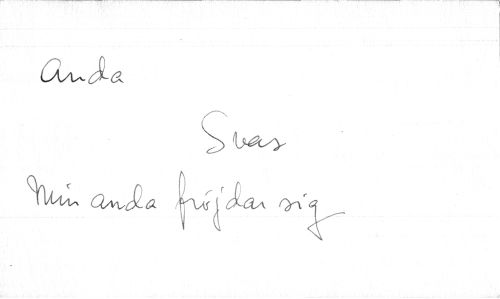 Anda
Svas
Min anda fröjdar sig